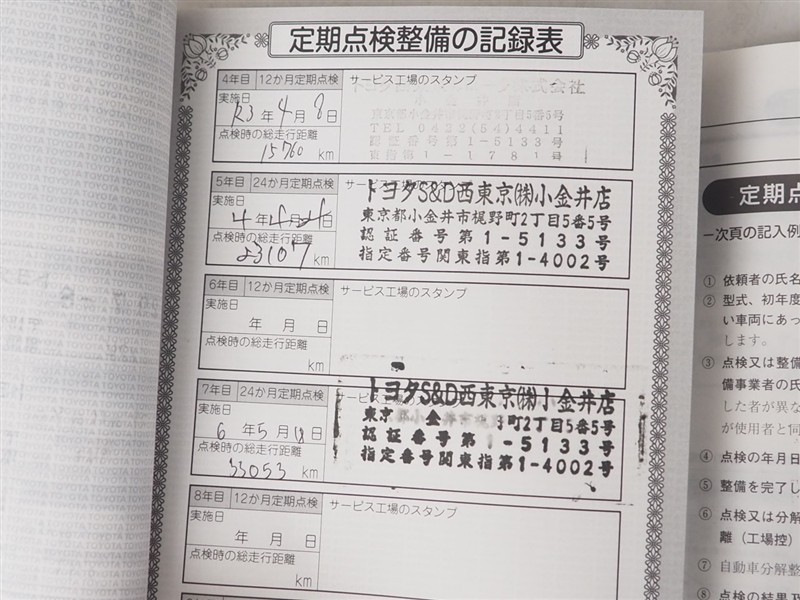 定期点検整備の記録表
4年目 12か月定期点検 サービス工場のスタンプ
実施日
R3年4月8日
点検時の総走行距離
15760 km
株式会社
東京都小金井市梶野町2丁目5番5号
TEL 0422(54)4411
認証番号 第1-5133号
第1-1781号
5年目 24か月定期点検 サービス工場のスタンプ
トヨタS&D西東京㈱小金井店
実施日
4年4月4日
東京都小金井市梶野町2丁目5番5号
認証番号第1-5133号
点検時の総走行距離
23107 km
指定番号関東指第1-4002号
6年目 12か月定期点検 サービス工場のスタンプ
実施日
年 月 日
点検時の総走行距離
km
7年目 24か月定期点検 サービス工場のスタンプ
トヨタS&D西東京㈱小金井店
実施日
6年5月18日
東京 金 町2丁目5番5号
認証番号第1-5133号
点検時の総走行距離
33053 km
指定番号関東指第1-4002号
8年目 12か月定期点検 サービス工場のスタンプ
実施日
年 月 日
点検時の総走行距離
km
定期点
一次頁の記入例
① 依頼者の氏名
② 型式、初年度
い車両にあっ
します。
③ 点検又は整備
備事業者の氏
した者が異な
が使用者と同
④ 点検の年月日
⑤ 整備を完了し
⑥ 点検又は分解
離（工場控）
⑦ 自動車分解整
⑧ 点検の結果及